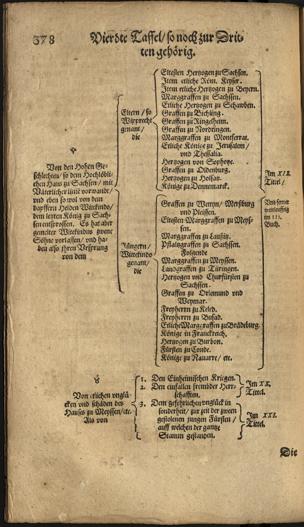 378 Vierdte Taffel / so noch zur Drit-
ten gehörig.
Von den Hohen Ge-
schlechten / so dem Hochlöbli-
chen Haus zu Sachsen / mit
Väterlicher linie vorwandt /
und eben so wol von dem
dapffern Helden Witekinds /
dem letzten König zu Sach-
sen entsprossen. Es hat aber
gemelter Witekindus zween
Söhne vorlassen / und ha-
ben also ihren Ursprung
von dem
Eltern / so
Wipprecht
genant /
die
Eltesten Hertzogen zu Sachsen.
Item etliche Röm. Keyser.
Item etliche Hertzogen zu Beyern.
Marggraffen zu Sachsen.
Etliche Hertzogen zu Schwaben.
Graffen zu Zechling.
Graffen zu Ringelheim.
Graffen zu Nordingen.
Marggraffen zu Montferrat.
Etliche Könige zu Jerusalem /
und Thessalia.
Hertzogen von Saphoye.
Graffen zu Oldenburg.
Hertzogen zu Holsat.
Könige zu Dennemarck.
Jüngern /
Witekinds
genant /
die
Graffen zu Wettyn / Meysburg
und Pleissen.
Eltesten Marggraffen zu Meys-
sen.
Marggraffen zu Lausitz.
Pfaltzgraffen zu Sachssen.
Folgende
Marggraffen zu Meyssen.
Landgraffen zu Türingen.
Hertzogen und Churfürsten zu
Sachssen.
Graffen zu Orlemund und
Weymar.
Freyherrn zu
Freyherrn zu
Etliche Marggraffen zu Brādeburg.
Könige in Franckreich.
Hertzogen zu Burbon.
Fürsten zu Conde.
Könige zu Nauarre / etc.
Im XIX.
Tittel /
Und ferner
im III.
Buch.
Von etlichen unglü-
cken und schäden des
Hauses zu Meyssen / etc.
Als von
1. Den Einheimischen Kriegen.
2. Dem einfallen frembder Herr-
schafften.
Im XX.
Tittel.
3. Dem gefehrlichen unglück in
sonderheit / zur zeit der zween
gestolenen jungen Fürsten /
auff welchen der gantze
Stamm gestanden.
Im XXI.
Tittel.
Die